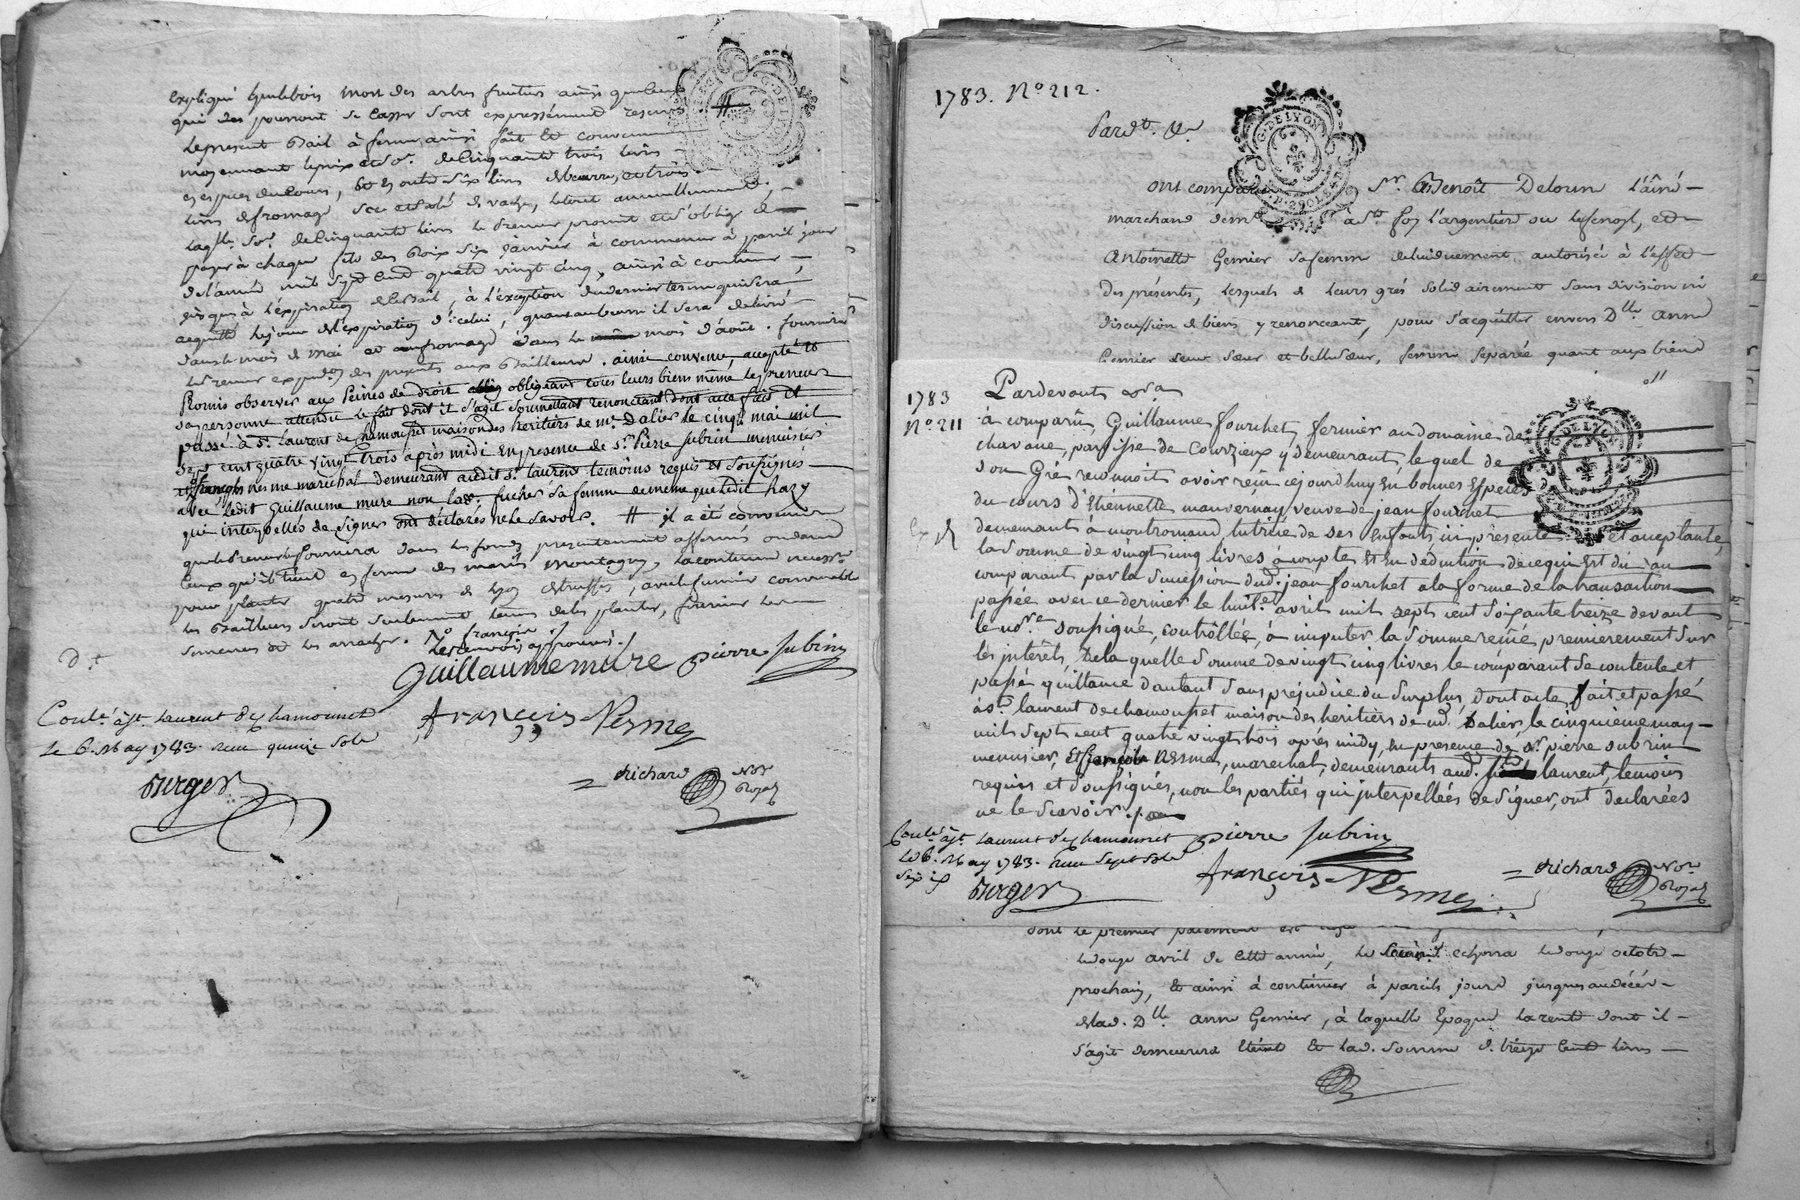 expliqué que le bois mort des arbres fruitiers ainsi que ceux
qui des pourront se casser sont expressément reservés #
Le present Bail à ferme ainsi fait et convenu
moyennant le prix et so.e de cinquante trois livres
especes du cours, et en outre six livres de beurre, et trois
livres de fromage sec et salé de vache, le tout annuellement,
laq.lle so.e de cinquante livres le preneur promet et s'oblige de
payer à chaque fête des Rois six janvier à commencer à pareil jour
de l'année mil sept cent quatre vingt cinq, ainsi à continuer
jusques à l'expiration de ce Bail, à l'exception du dernier terme qui sera
acquitté le jour de l'expiration d'icelui, quant au beurre il sera delivré
dans le mois de mai et au fromage dans le mois d'août. fournira
le Preneur expéd.on des presents aux Bailleurs. ainsi convenu, accepté et
Promis observer aux Peines de droit obligeant tous leurs biens même le preneur
sa personne attendu le fait dont il s'agit Soumettant renonceant dont acte fait et
passé à S.t Laurent de chamousset maison des héritiers de m.e Dalier le cinq mai mil
sept cent quatre vingt trois après midi En presence de S.r Pierre Subrin menuisier
et françois nesme maréchal demeurant audit S.t laurent temoins requis et Soussignés
avec ledit Guillaume mure non lad. fuchet Sa femme de meme que ledit hazy
qui interpellés de Signer ont déclarés ne le Savoir. # il a été convenu
que le Preneur fournira dans les fonds presentement affermés ou dans
ceux qu'il tient en ferme des mariés montagny, la contenue necess.re
pour planter quatre mesures de truffes, avec fumier convenable
les Bailleurs seront seulement tenus de les planter, fournir les
semences et les arracher. N.o françois
Les renvois approuvés ./.
D.t
Guillaume mure pierre Subrin
françois Nesme
Cont.é à S.t Laurent de Chamousset
Le 6. May 1783. reçu quinze Sols
Burger
Richard Not.re
Royal
1783. N.o 212.
Pardt. &a
ont comparu S.r Benoît Deloun l'aîné
marchand dem.t à S.te foy l'argentière ou Lafenoyl, et
Antoinette Gemier sa femme de lui dûement autorisée à l'effet
des présentes, lesquels de leurs grés solidairement sans division ni
discussion de biens y renonceant, pour s'acquitter envers D.lle anne
Gemier leur sœur et belle sœur, femme separée quant aux biens
1783
N.o 211
Pardevant &a
à comparû, Guillaume fourchet, fermier au domaine de
chavane, parroisse de Courzieux y demeurant, le quel de
son Gré reconnoit avoir reçu cejourdhuy En bonnes Especes
du cours d'Etiennette mauvernay veuve de jean fourchet
demeurante à montromand, tutrice de ses Enfants ici présente et acceptante,
la Somme de vingt cinq livres à compte Et en déduction de ce qui Est dû au
comparant par la Succession dud. jean fourchet à la forme de la transaction
passée avec ce dernier le huit avril mil sept cent Soixante treize devant
le no.re soussigné, contrôllée, à imputer la Somme reçue premierement Sur
les intérêts, De la quelle Somme de vingt cinq livres le comparant Se contente et
passé quittance d'autant Sans préjudice du Surplus, dont acte, fait et passé
à S.t laurent de chamousset maison des heritiers de m.e Dalier, le cinquieme may
mil sept cent quatre vingt trois après midy, En presence de S.r pierre subrin
menuisier, Et françois nesme, marechal, demeurants aud. laurent, temoins
requis et Soussignés, non les parties qui interpellées de Signer, ont declarées
ne le Scavoir ./.
Cont.é à S.t Laurent de Chamousset pierre Subrin
Le 6. May 1783. reçu Sept Sols françois Nesme
Six d. Burger
Richard No.re
Royal
dont le premier paiement est
le onze avril de cette année, le echerra le onze octobre
prochain, et ainsi à continuer à pareils jours jusques au décès
de lad. D.lle anne Gemier, à laquelle Epoque la rente dont il
s'agit demeurera éteinte et lad. somme de treize cents livres